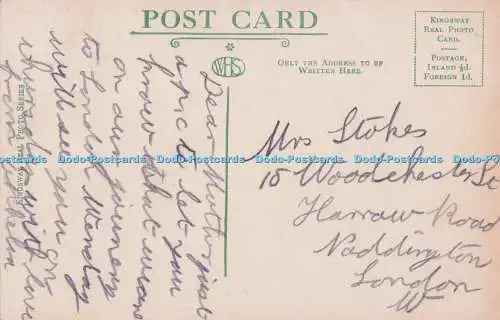 POST CARD
WHS
ONLY THE ADDRESS TO BE
WRITTEN HERE.
KINGSWAY
REAL PHOTO
CARD.
POSTAGE,
INLAND ½d.
FOREIGN 1d.
KINGSWAY REAL PHOTO SERIES
Dear Mother just
a p.c to let you
know that we are
on our journey
to London Monday
with see you
on
Thursday with love
from
Mrs Stokes
15 Woodchester
Harrow Road
Paddington
London
W
Dodo-Postcards Dodo-Postcards Dodo-Postcards Dodo-Postcards Dodo-Postcards Dodo-Postcards